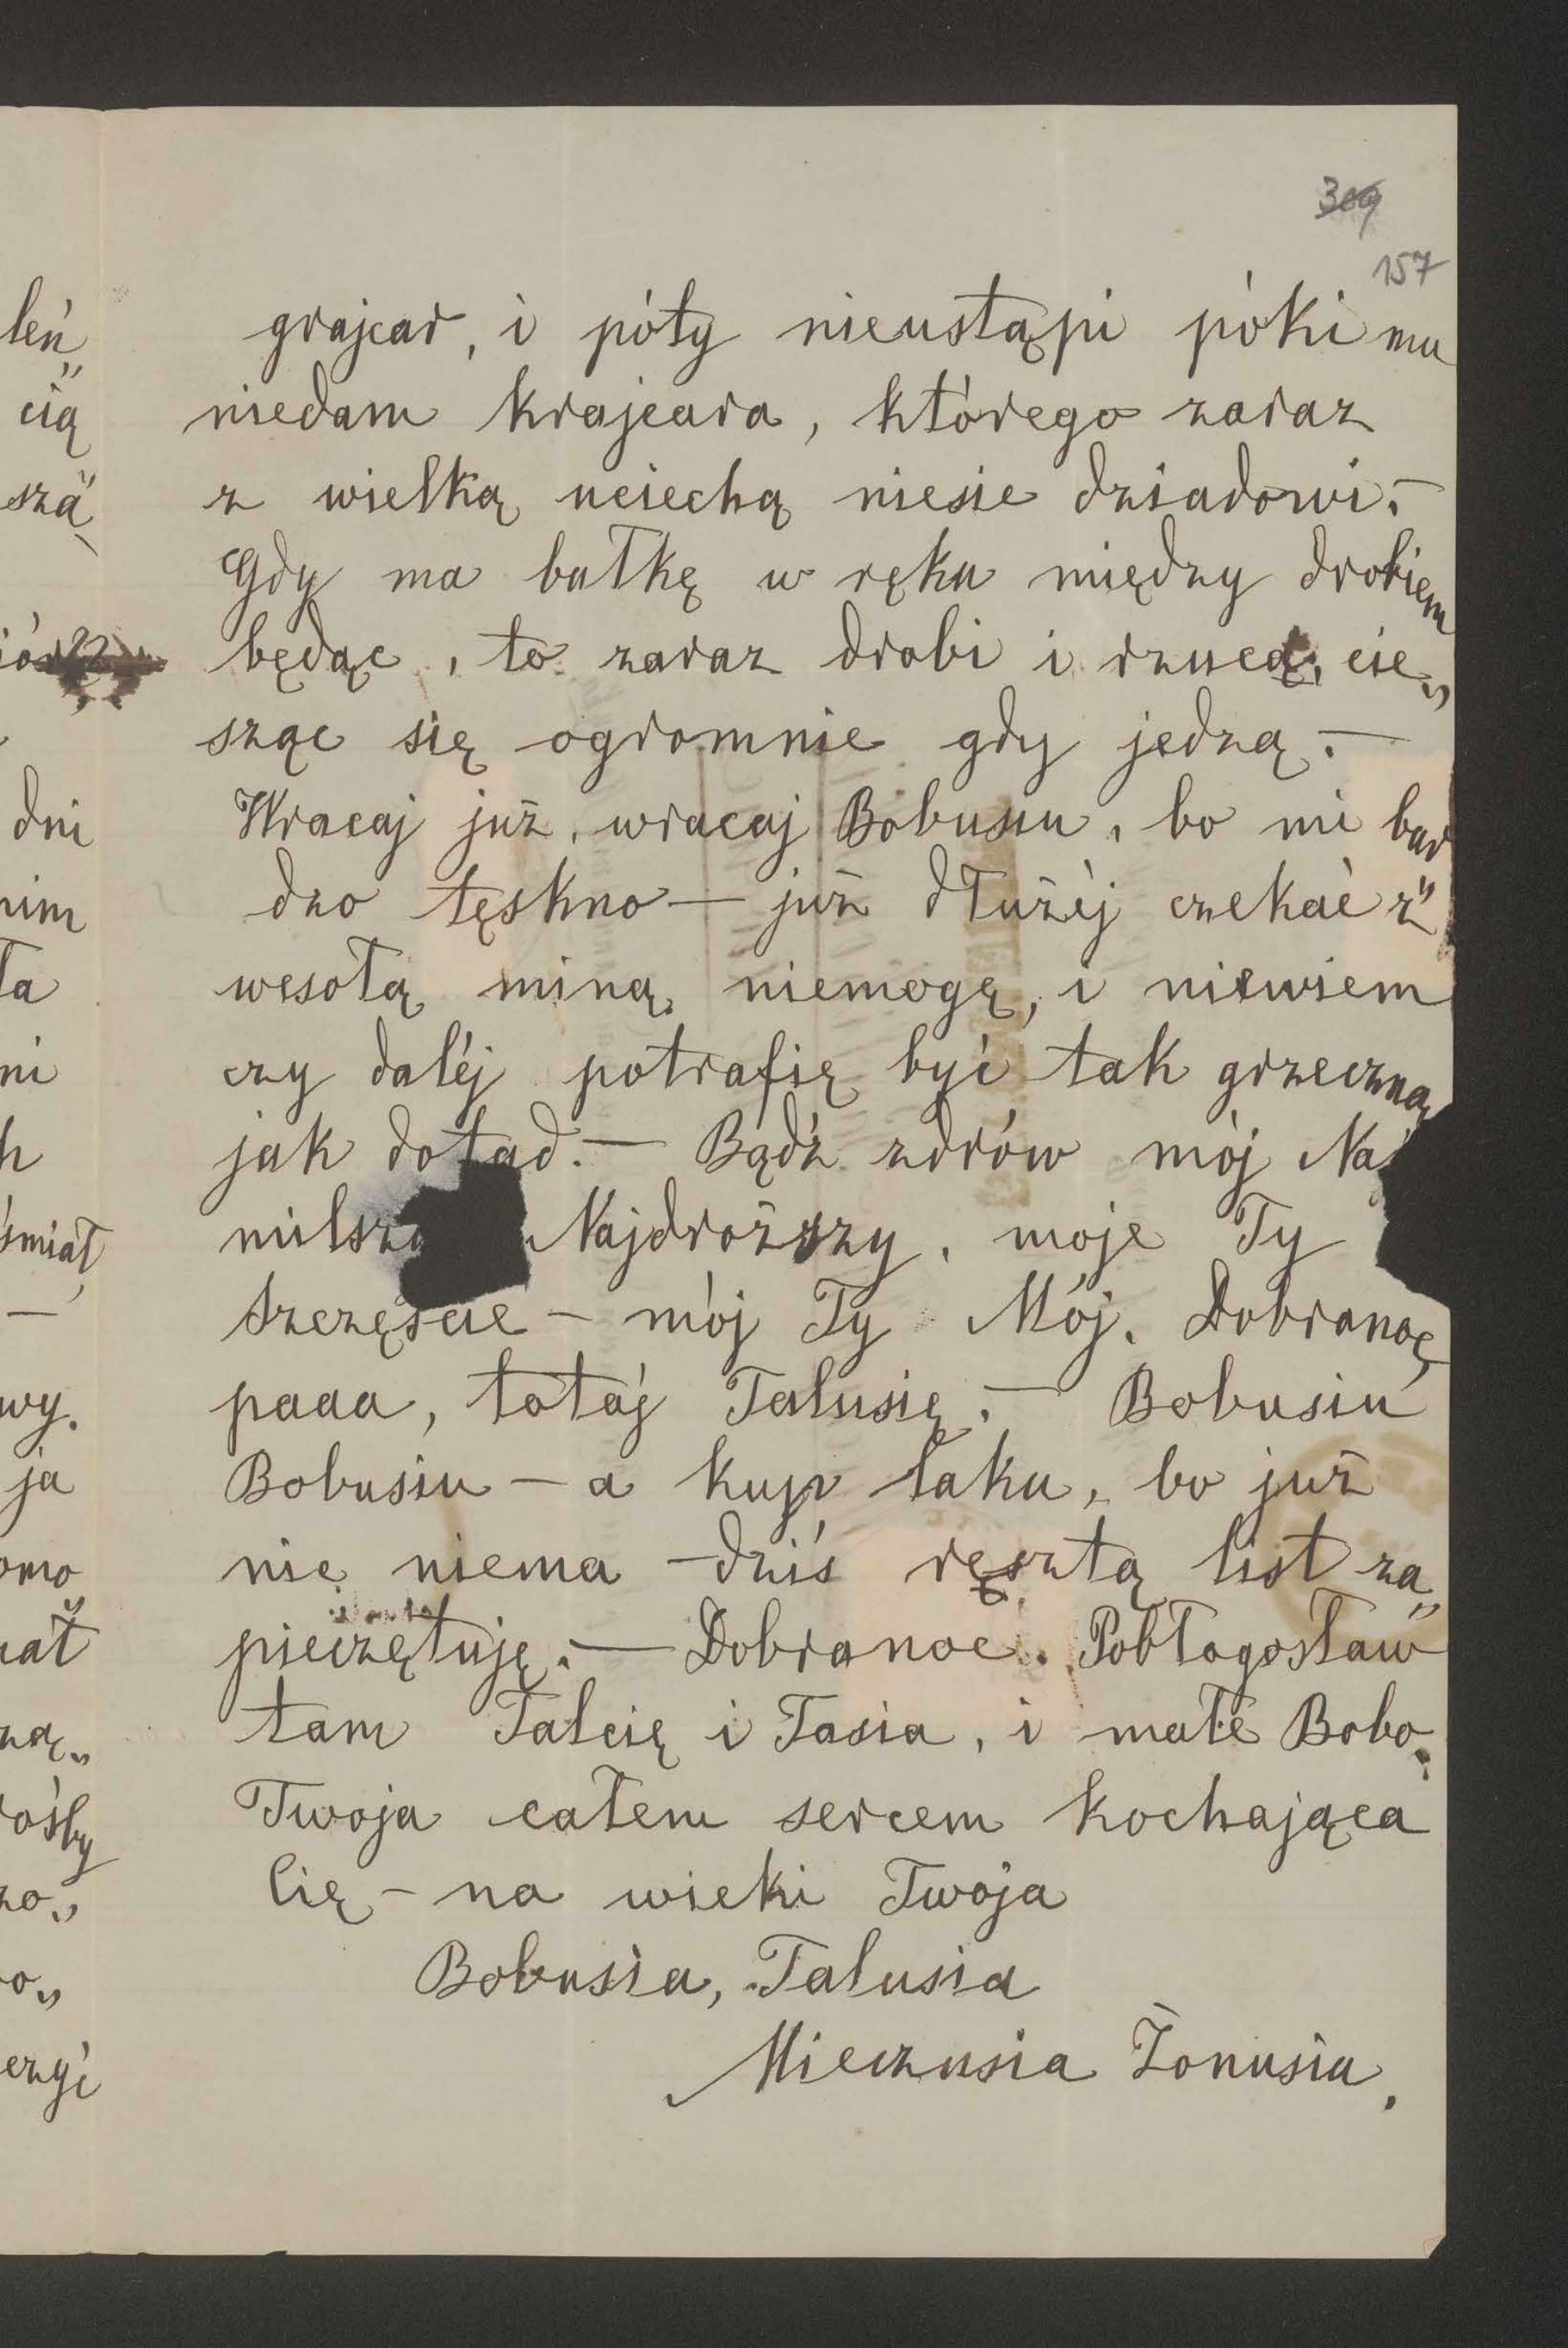 309
157
grajcar, i póty nieustąpi póki mu
niedam krajcara, którego zaraz
z wielką uciechą niesie dziadowi.—
Gdy ma bułkę w ręku między drobiem
będąc, to zaraz drobi i rzuca, cie„
sząc się ogromnie gdy jedzą.—
Wracaj już, wracaj Bobusiu, bo mi bar
dzo tęskno — już dłużéj czekać z
wesołą miną niemogę, i niewiem
czy daléj potrafię być tak grzeczną
jak dotąd.— Bądź zdrów mój Naj
milsz Najdroższy, moje Ty
Szczęście — mój Ty Mój. Dobranoc,
paaa, totaj Talusię.— Bobusiu
Bobusiu — a kup laku, bo już
nic niema — dziś resztą list za„
pieczętuję.— Dobranoc. Pobłogosław
tam Talcię i Tasia, i małe Bobo.
Twoja całem sercem kochająca
Cię — na wieki Twoja
Bobusia, Talusia
Mieczusia Żonusia.
leń„
cią
szą
dni
nim
ła
ni
h
śmiał
—
wy.
ja
omo
ał
zą„
ośby
zo„
o„
czyć